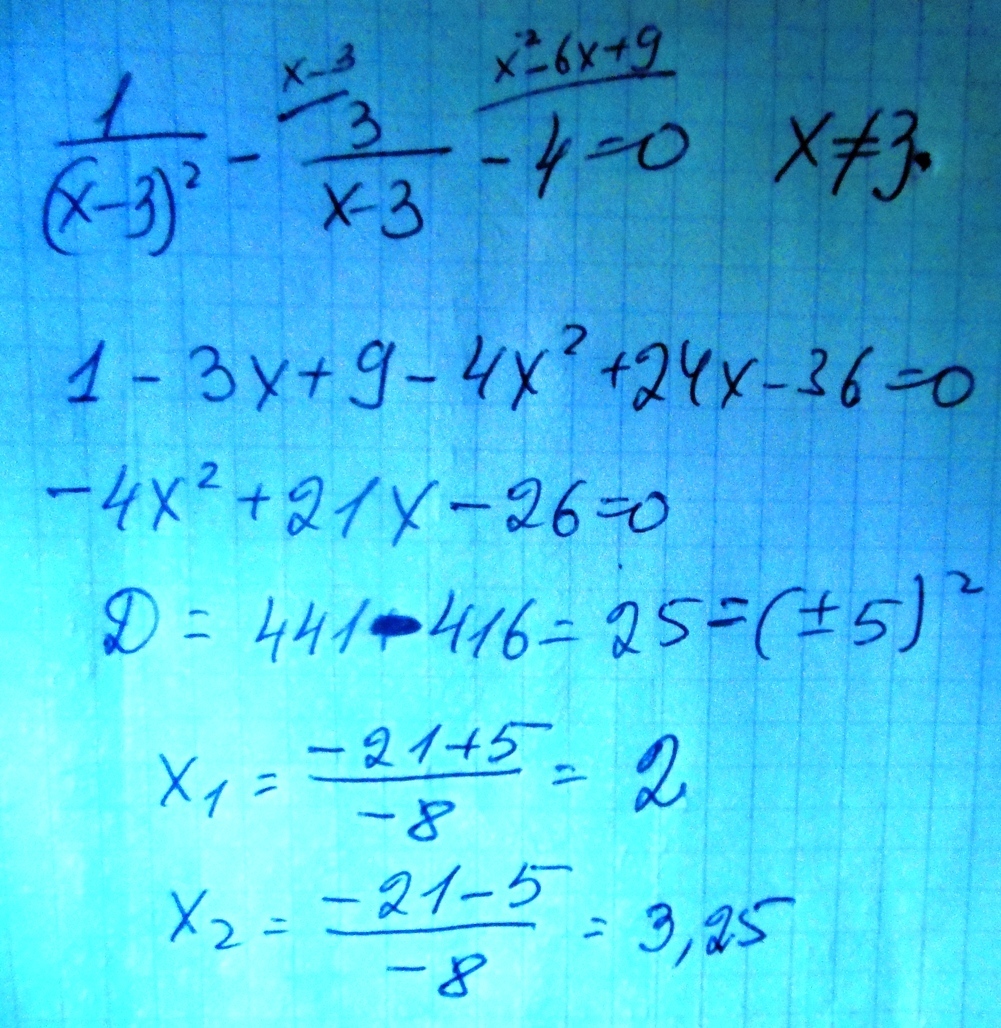 x-3 x²-6x+9
1/(x-3)² - 3/(x-3) - 4=0 x≠3.
1-3x+9-4x²+24x-36=0
-4x²+21x-26=0
D=441-416=25=(±5)²
x₁=(-21+5)/(-8)=2
x₂=(-21-5)/(-8)=3,25